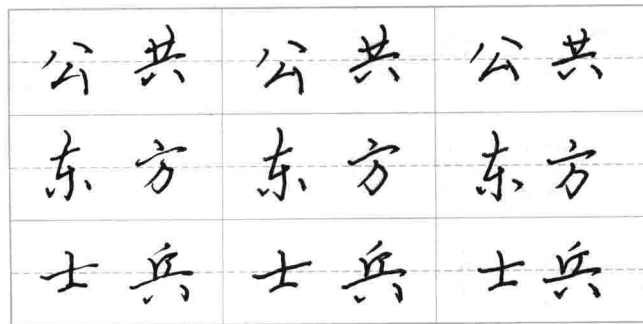 公共 公共 公共
东方 东方 东方
士兵 士兵 士兵